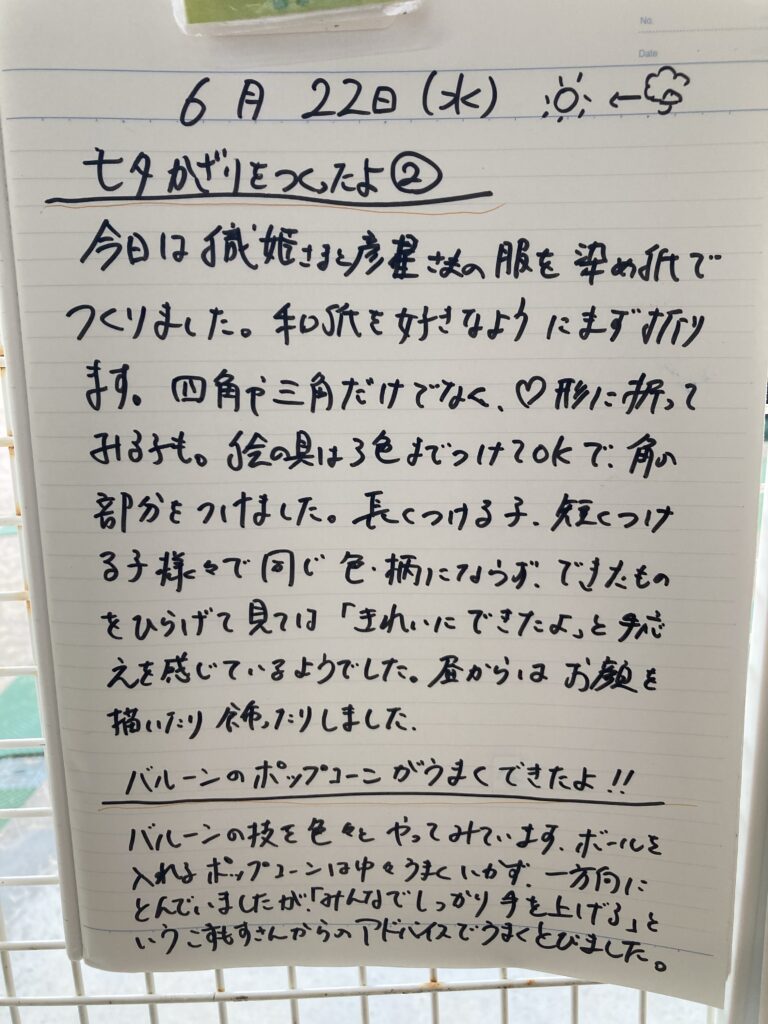 No.
Date
6月 22日(水)
七夕かざりをつくったよ②
今日は織姫さまと彦星さまの服を染め紙で
つくりました。和紙を好きなようにまず折り
ます。四角や三角だけでなく、♡形に折って
みる子も。絵の具は3色までつけてOKで、角の
部分をつけました。長くつける子、短くつけ
る子様々で同じ色・柄にならず、できたもの
をひらげて見ては「きれいにできたよ」と手応
えを感じているようでした。昼からはお顔を
描いたり飾ったりしました.
バルーンのポップコーンがうまくできたよ!!
バルーンの技を色々とやってみています。ボールを
入れるポップコーンは中々うまくいかず、一方向に
とんでいましたが、「みんなでしっかり手を上げる」と
いうこすもすさんからのアドバイスでうまくとびました。